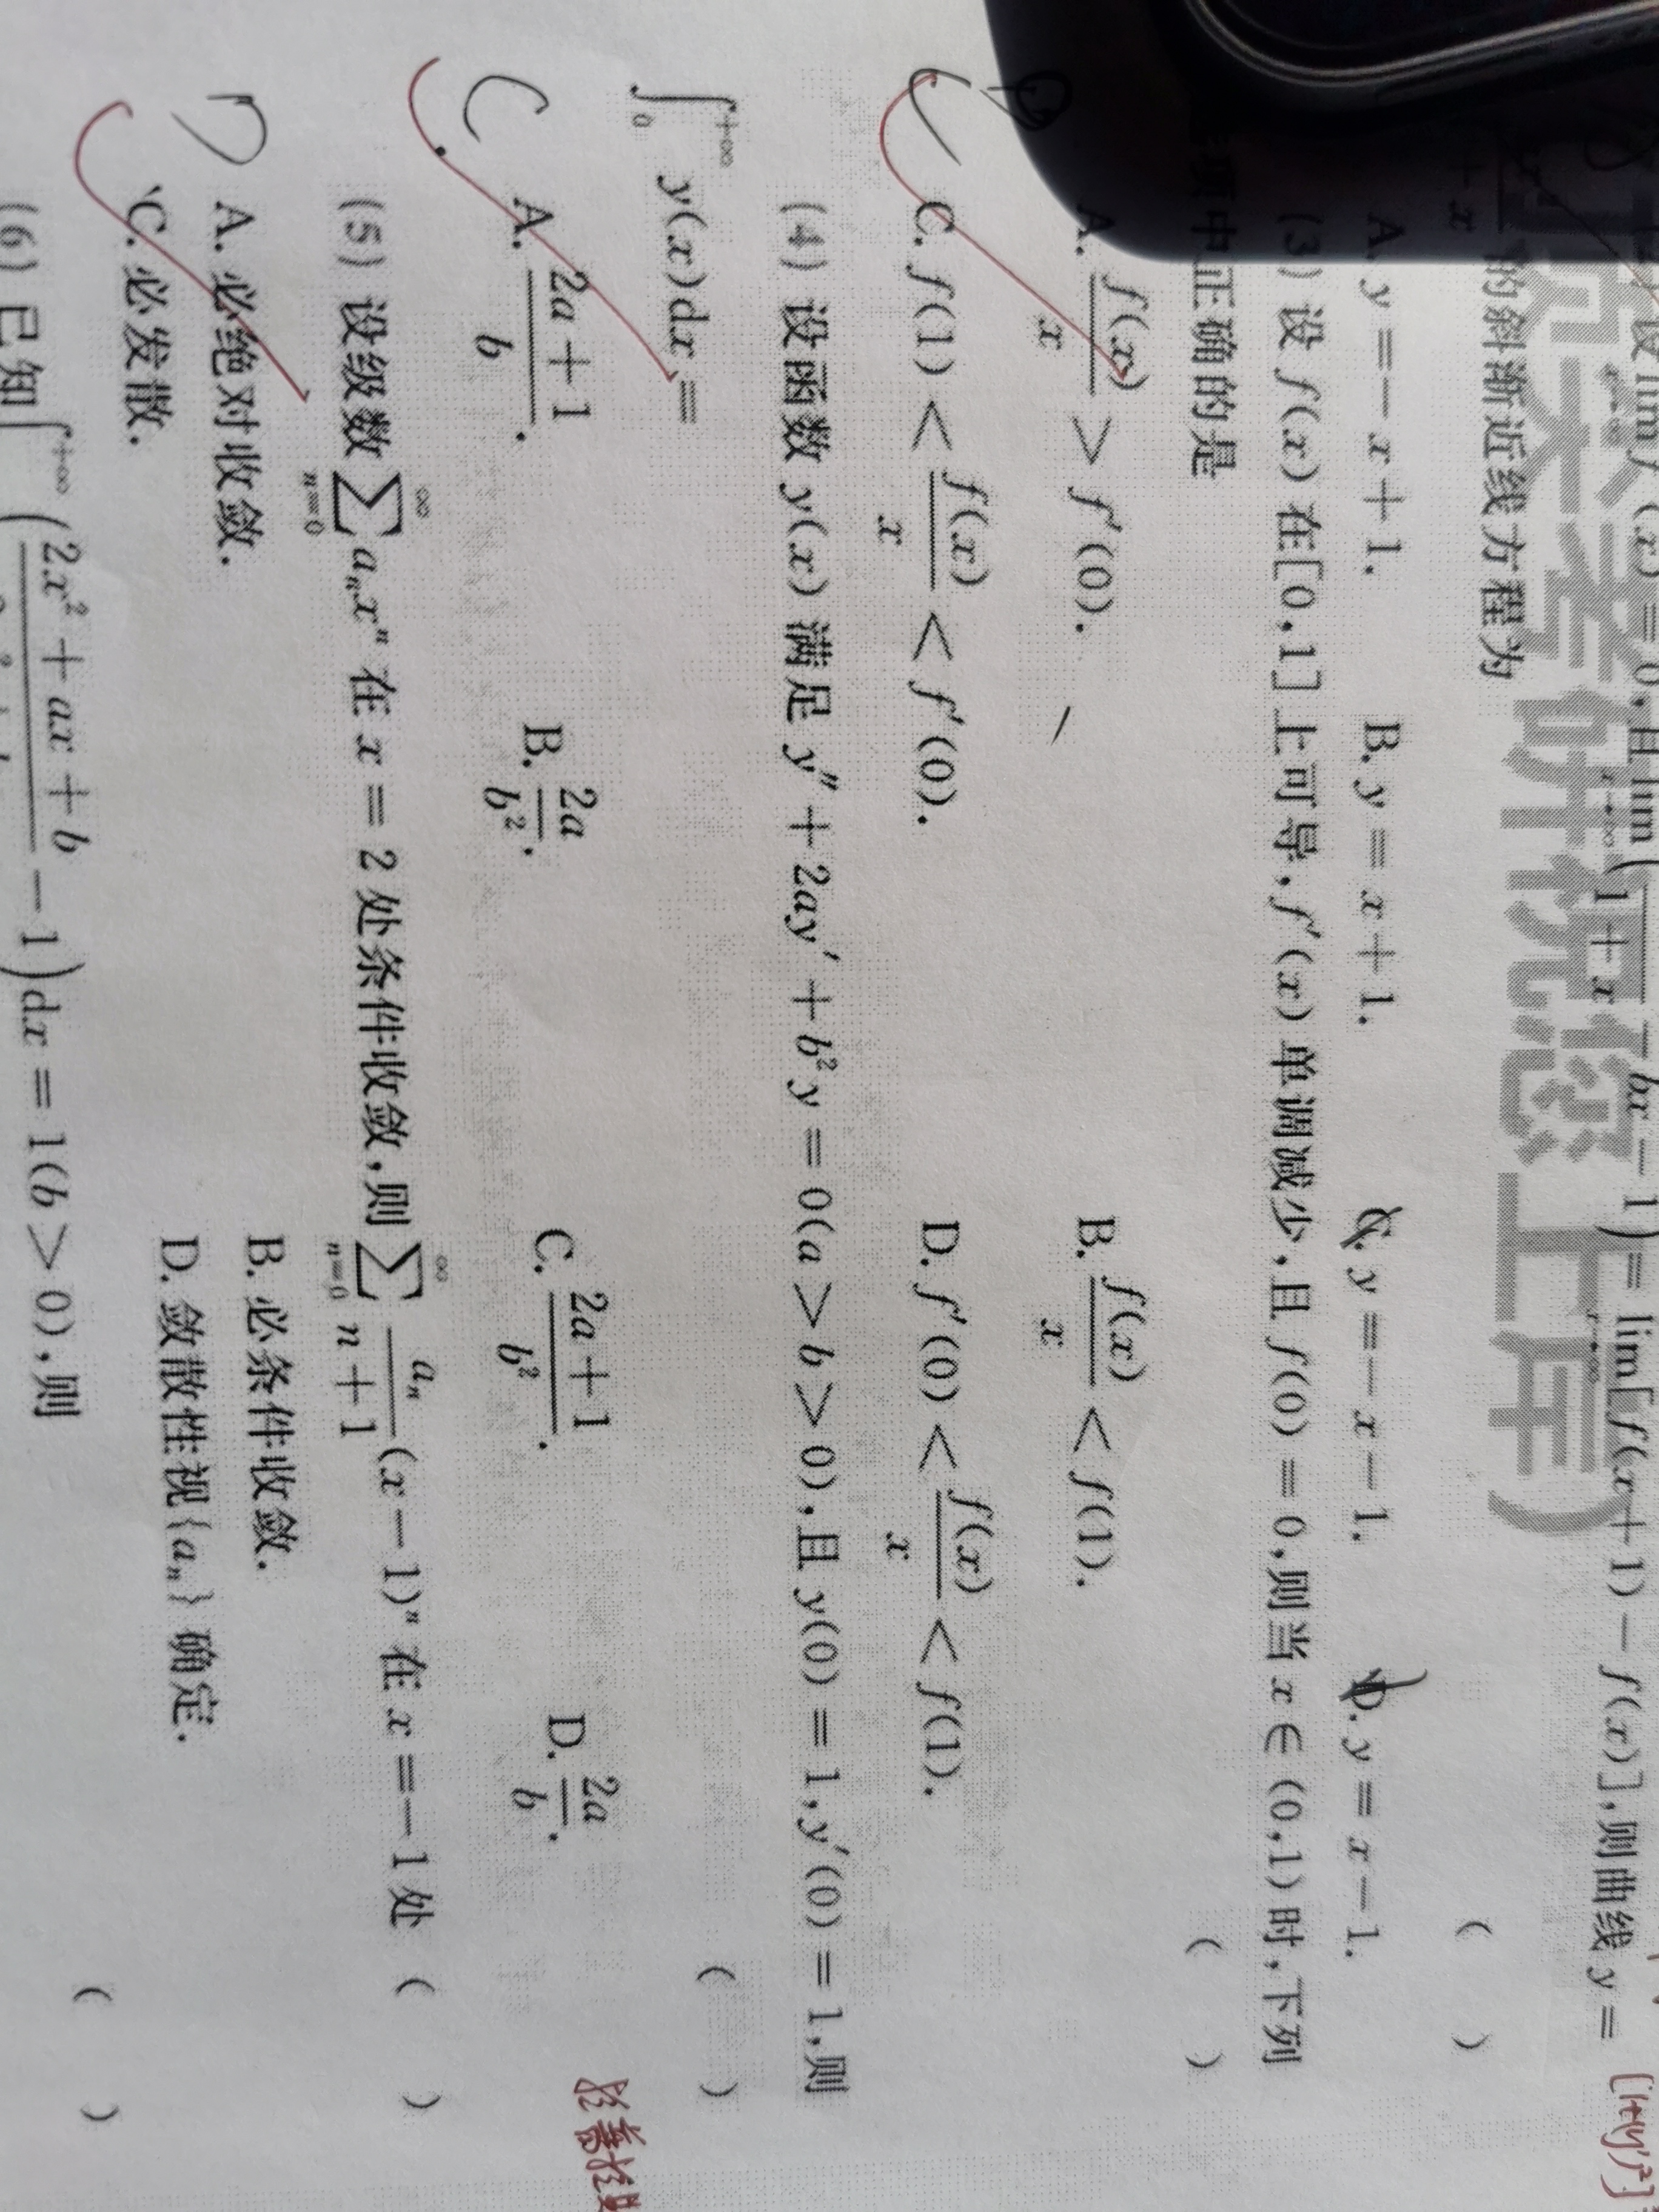 设 lim f(x) = 0, 且 lim(1/(1+x) - bx - 1) = lim[f(x+1) - f(x)], 则曲线 y =
的斜渐近线方程为 ( )
A. y = -x + 1. B. y = x + 1. C. y = -x - 1. D. y = x - 1.
(3) 设 f(x) 在[0,1]上可导, f'(x) 单调减少, 且 f(0) = 0, 则当 x ∈ (0,1) 时, 下列
项中正确的是 ( )
A. f(x)/x > f'(0). B. f(x)/x < f(1).
C C. f(1) < f(x)/x < f'(0). D. f'(0) < f(x)/x < f(1).
(4) 设函数 y(x) 满足 y'' + 2ay' + b²y = 0(a > b > 0), 且 y(0) = 1, y'(0) = 1, 则
∫₀^{+∞} y(x)dx = ( )
C A. (2a+1)/b. B. 2a/b². C. (2a+1)/b². D. 2a/b.
(5) 设级数 ∑_{n=0}^{∞} aₙxⁿ 在 x = 2 处条件收敛, 则 ∑_{n=0}^{∞} aₙ/(n+1) (x-1)ⁿ 在 x = -1 处 ( )
D A. 必绝对收敛. B. 必条件收敛.
C. 必发散. D. 敛散性视{aₙ}确定.
(6) 已知∫^{+∞} (2x² + ax + b - 1)dx = 1(b > 0), 则 ( )